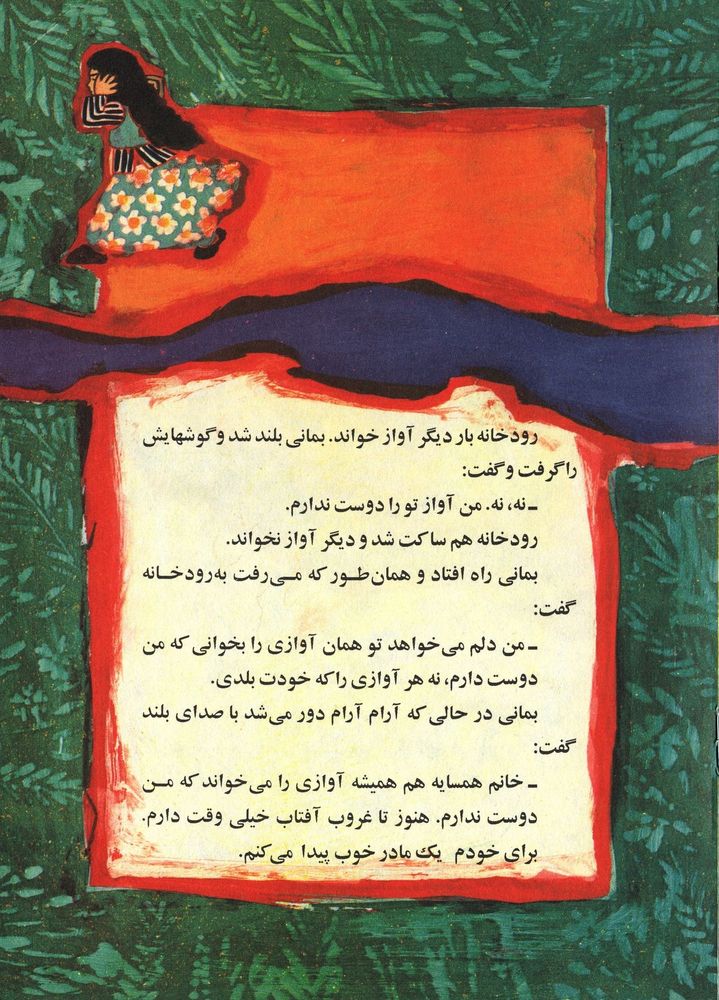 رودخانه بار دیگر آواز خواند. بمانی بلند شد و گوشهایش
را گرفت و گفت:
ـ نه، نه. من آواز تو را دوست ندارم.
رودخانه هم ساکت شد و دیگر آواز نخواند.
بمانی راه افتاد و همان‌طـور که مـی‌رفت به‌رودخـانه
گفت:
ـ من دلم می‌خواهد تو همان آوازی را بخوانی که من
دوست دارم، نه هر آوازی را که خودت بلدی.
بمانی در حالی که آرام آرام دور می‌شد با صدای بلند
گفت:
ـ خانم همسایه هم همیشه آوازی را می‌خواند که مـن
دوست ندارم. هنوز تا غروب آفتاب خیلی وقت دارم.
برای خودم یک مادر خوب پیدا می‌کنم.